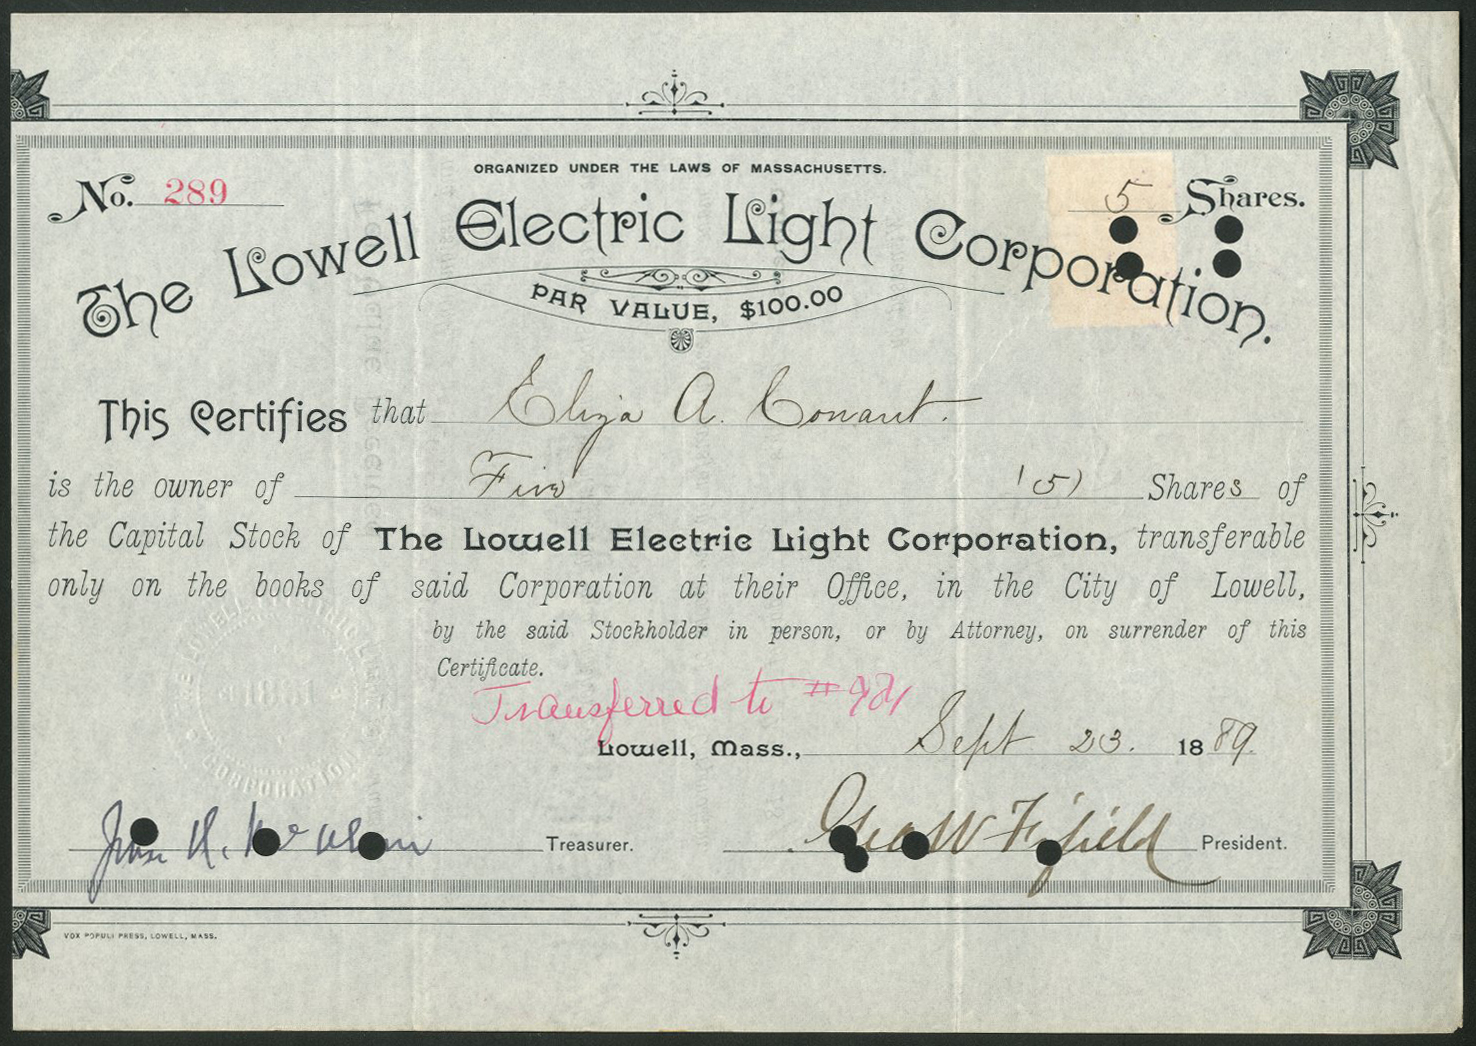 ORGANIZED UNDER THE LAWS OF MASSACHUSETTS.
No. 289
5 Shares.
The Lowell Electric Light Corporation.
PAR VALUE, $100.00
This Certifies that Eliza A. Conant.
is the owner of Five (5) Shares of
the Capital Stock of The Lowell Electric Light Corporation, transferable
only on the books of said Corporation at their Office, in the City of Lowell,
by the said Stockholder in person, or by Attorney, on surrender of this
Certificate.
Transferred to #
Lowell, Mass., Sept 23. 1889.
Treasurer.
Geo W Fifield President.
LOWELL ELECTRIC LIGHT
1881
CORPORATION
VOX POPULI PRESS, LOWELL, MASS.